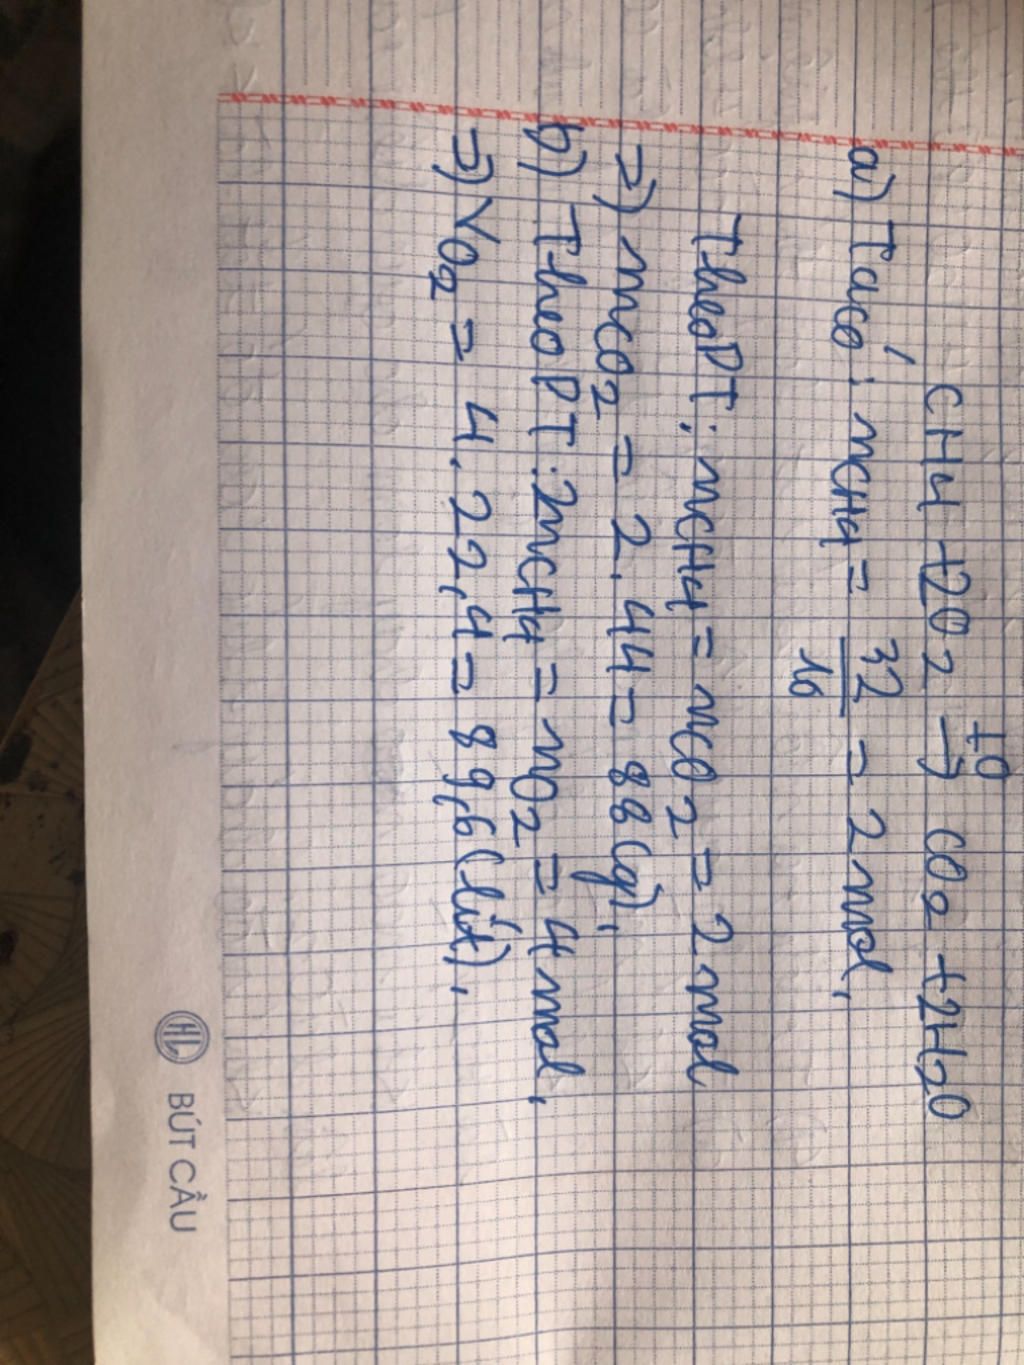 t0
CH4 + 2O2 → CO2 + 2H2O
a) Ta có: nCH4 = 32/16 = 2 mol.
Theo PT: nCH4 = nCO2 = 2 mol
=) mCO2 = 2.44 = 88(g).
b) Theo PT: 2nCH4 = nO2 = 4 mol.
=) VO2 = 4.22,4 = 89,6 (lít).
HL BÚT CẦU